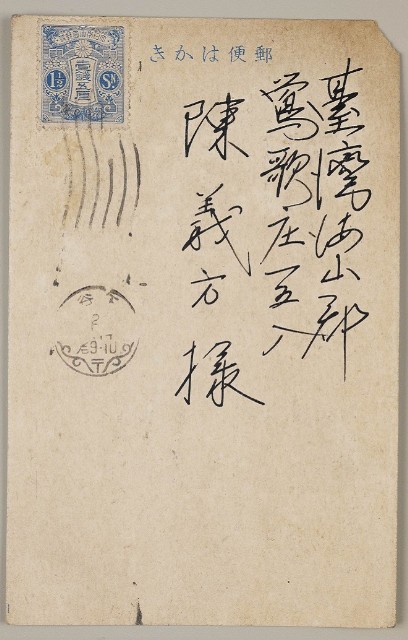 郵便はかき
臺灣海山郡
鶯歌庄五八
陳義方様
壹錢五厘
1½ Sn